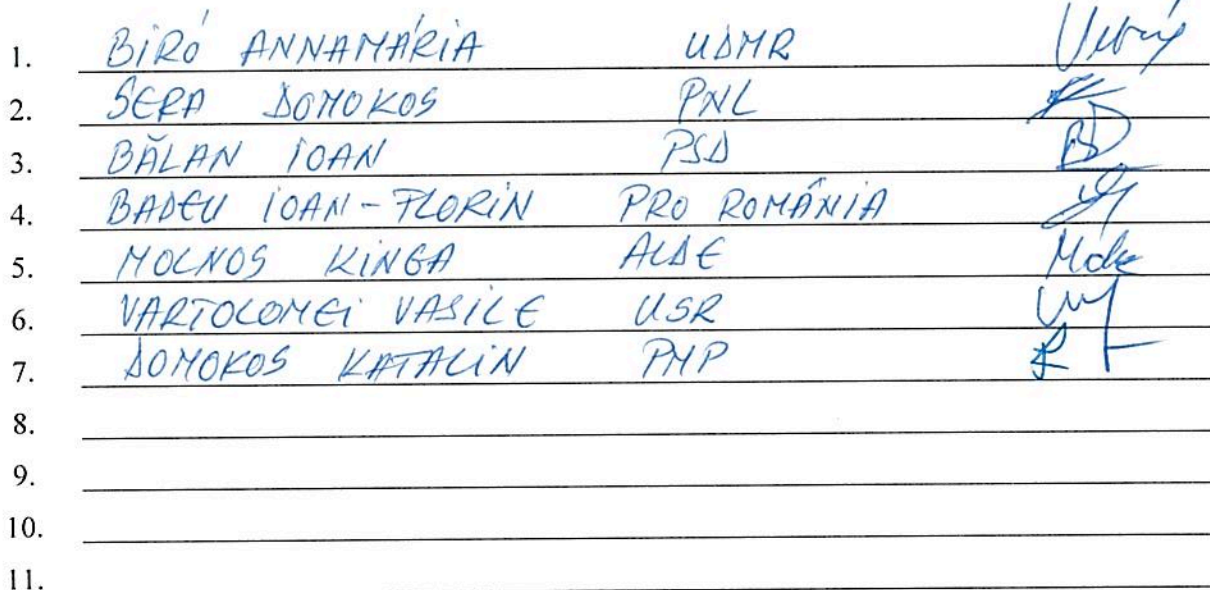 1. BIRÓ ANNAMÁRIA UDMR
2. SERA DOMOKOS PNL
3. BĂLAN IOAN PSD
4. BADEU IOAN-FLORIN PRO ROMÂNIA
5. MOLNOS KINGA ALDE
6. VARTOLOMEI VASILE USR
7. DOMOKOS KATALIN PMP
8.
9.
10.
11.